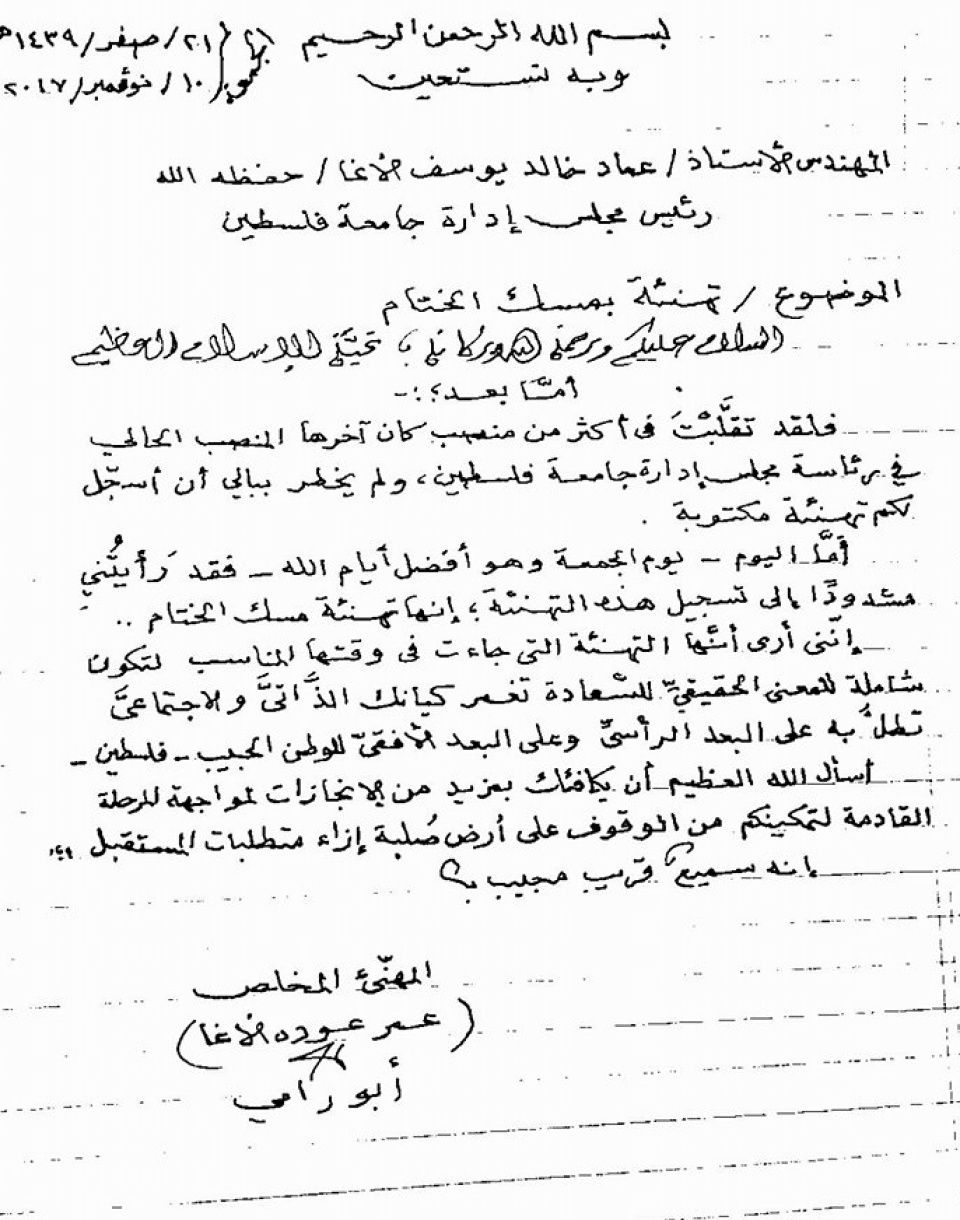 بسم الله الرحمن الرحيم ٢١/صفر/١٤٣٩هـ
وبه نستعين ١٠/نوفمبر/٢٠١٧
المهندس الأستاذ/ عماد خالد يوسف الأغا/ حفظه الله
رئيس مجلس إدارة جامعة فلسطين
الموضوع / تهنئة بمسك الختام
السلام عليكم ورحمة الله وبركاته؛ تحيَّة الإسلام العظيم
أمَّا بعد؛:-
فلقد تقلَّبْتَ في أكثر من منصب كان آخرها المنصب الحالي
في رئاسة مجلس إدارة جامعة فلسطين، ولم يخطر ببالي أن أسجّل
لكم تهنئة مكتوبة .
أمَّا اليوم - يوم الجمعة وهو أفضل أيام الله - فقد رَأيتُني
مشدودًا إلى تسجيل هذه التهنئة؛ إنها تهنئة مسك الختام ..
إنّني أرى أنَّها التهنئة التي جاءت في وقتها المناسب لتكون
شاملة للمعنى الحقيقيِّ للسَّعادة تغمر كيانك الذَّاتيَّ والاجتماعيَّ
تطلُّ به على البعد الرأسيِّ وعلى البعد الأفقيّ للوطن الحبيب - فلسطين -
أسأل الله العظيم أن يكافئك بمزيد من الإنجازات لمواجهة المرحلة
القادمة لتمكينكم من الوقوف على أرض صُلبة إزاء متطلبات المستقبل
إنه سميعٌ قريب مجيب
المهنّئ المخلص
(عمر عوده الأغا)
أبو رامي